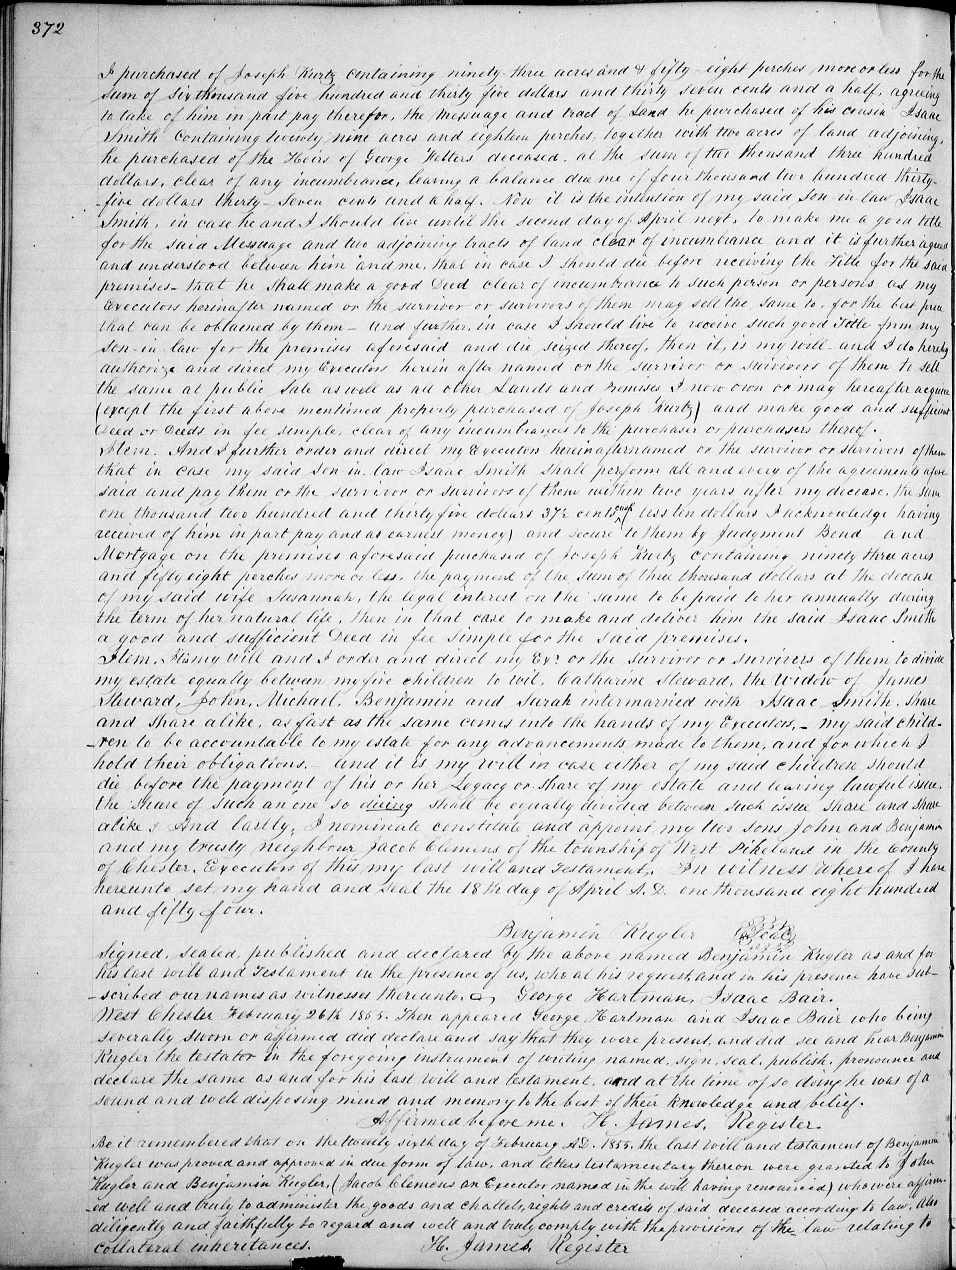 372
I purchased of Joseph Kurtz containing ninety three acres and & fifty-eight perches more or less for the
sum of six thousand five hundred and thirty five dollars and thirty seven cents and a half, agreeing
to take of him in part pay therefor, the Message and tract of Land he purchased of his cousin Isaac
Smith containing twenty nine acres and eighteen perches, together with two acres of land adjoining,
he purchased of the Heirs of George Walters deceased. at the sum of two thousand three hundred
dollars, clear of any incumbrance, leaving a balance due me of four thousand two hundred thirty-
-five dollars thirty-seven cents and a half. Now it is the intention of my said Son in law Isaac
Smith, in case he and I should live until the second day of April next, to make me a good title
for the said Messuage and two adjoining tracts of land clear of incumbrance and it is further agreed
and understood between him and me, that in case I should die before receiving the Title for the said
premises- that he shall make a good Deed clear of incumbrance to such person or persons as my
Executors hereinafter named or the survivor or survivors of them may sell the same to, for the best price
that can be obtained by them- and further, in case I should live to receive such good Title from my
son-in-law for the premises aforesaid and die seized thereof, then it, is my will- and I do hereby
authorize and direct my Executors herein after named or the survivor or survivors of them to sell
the same at public Sale as well as all other Lands and Premises I now own or may hereafter acquire
(except the first above mentioned property purchased of Joseph Kurtz) and make good and sufficient
Deed or Deeds in fee simple, clear of any incumbrances to the purchaser or purchasers thereof.
Item. And I further order and direct my Executors hereinafternamed or the survivor or survivors of them
that in case my said Son in law Isaac Smith shall perform all and every of the agreements afore
said and pay them or the survivor or survivors of them within two years after my decease, the sum
one thousand two hundred and thirty five dollars 37½ cents cash (less ten dollars I acknowledge having
received of him in part pay and as earnest money) and secure to them by Judgment Bond and
Mortgage on the premises aforesaid purchased of Joseph Kurtz containing ninety three acres
and fifty eight perches more or less, the payment of the sum of three thousand dollars at the decease
of my said wife Susannah, the legal interest on the same to be paid to her annually during
the term of her natural life, then in that case to make and deliver him the said Isaac Smith
a good and sufficient Deed in fee simple for the said premises.
Item, It is my will and I order and direct my Exrs or the survivor or survivors of them to divide
my estate equally between my five children to wit, Catharine Steward, the widow of James
Steward, John, Michael, Benjamin and Sarah intermarried with Isaac Smith, share
and share alike, as fast as the same comes into the hands of my Executors,- my said child-
-ren to be accountable to my estate for any advancements made to them, and for which I
hold their obligations.- and it is my will in case either of my said children should
die before the payment of his or her Legacy or share of my estate and leaving lawful issue,
the share of such an one so dieing shall be equally divided between such issue share and share
alike; And lastly, I nominate constitute and appoint my two sons John and Benjamin
and my trusty neighbour Jacob Clemens of the township of West Pikeland in the County
of Chester, Executors of this, my last will and Testament. In witness whereof I have
hereunto set my hand and seal the 18th day of April A.D. one thousand eight hundred
and fifty four.
Benjamin Kugler Seal
Signed, sealed, published and declared by the above named Benjamin Kugler as and for
his last will and Testament in the presence of us, who at his request, and in his presence have sub-
-scribed our names as witnesses thereunto. George Hartman, Isaac Bair.
West Chester February 26th 1855. Then appeared George Hartman and Isaac Bair who being
severally sworn or affirmed did declare and say that they were present, and did see and hear Benjamin
Kugler the testator in the foregoing instrument of writing named, sign, seal, publish, pronounce and
declare the same as and for his last will and testament, and at the time of so doing he was of a
sound and well disposing mind and memory to the best of their knowledge and belief.
Affirmed before me. H. James, Register.
Be it remembered that on the twenty sixth day of February A.D. 1855, the last will and testament of Benjamin
Kugler was proved and approved in due form of law, and letters testamentary thereon were granted to John
Kugler and Benjamin Kugler, (Jacob Clemens an Executor named in the will having renounced) who were affirm-
-ed well and truly to administer the goods and chattels, rights and credits of said deceased according to law, also
diligently and faithfully to regard and well and truly comply with the provisions of the law relating to
collateral inheritances. H. James, Register